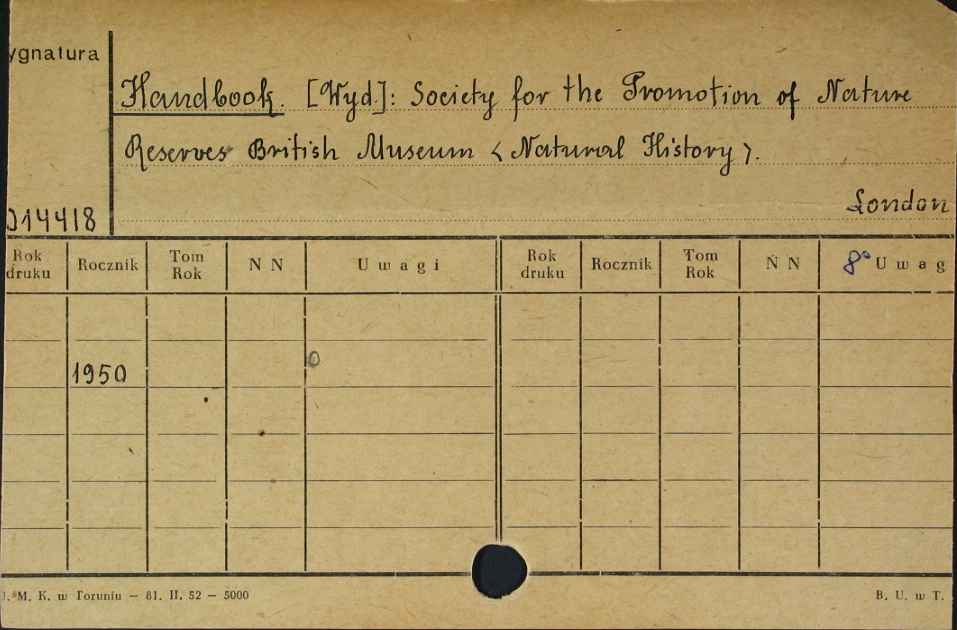 ygnatura
Handbook. [Wyd.]: Society for the Promotion of Nature
Reserves British Museum < Natural History >.
London
014418
Rok druku Rocznik Tom Rok N N Uwagi Rok druku Rocznik Tom Rok N N 8° Uwag
1950 0
U. M. K. w Toruniu — 81. II. 52 — 5000 B. U. w T.